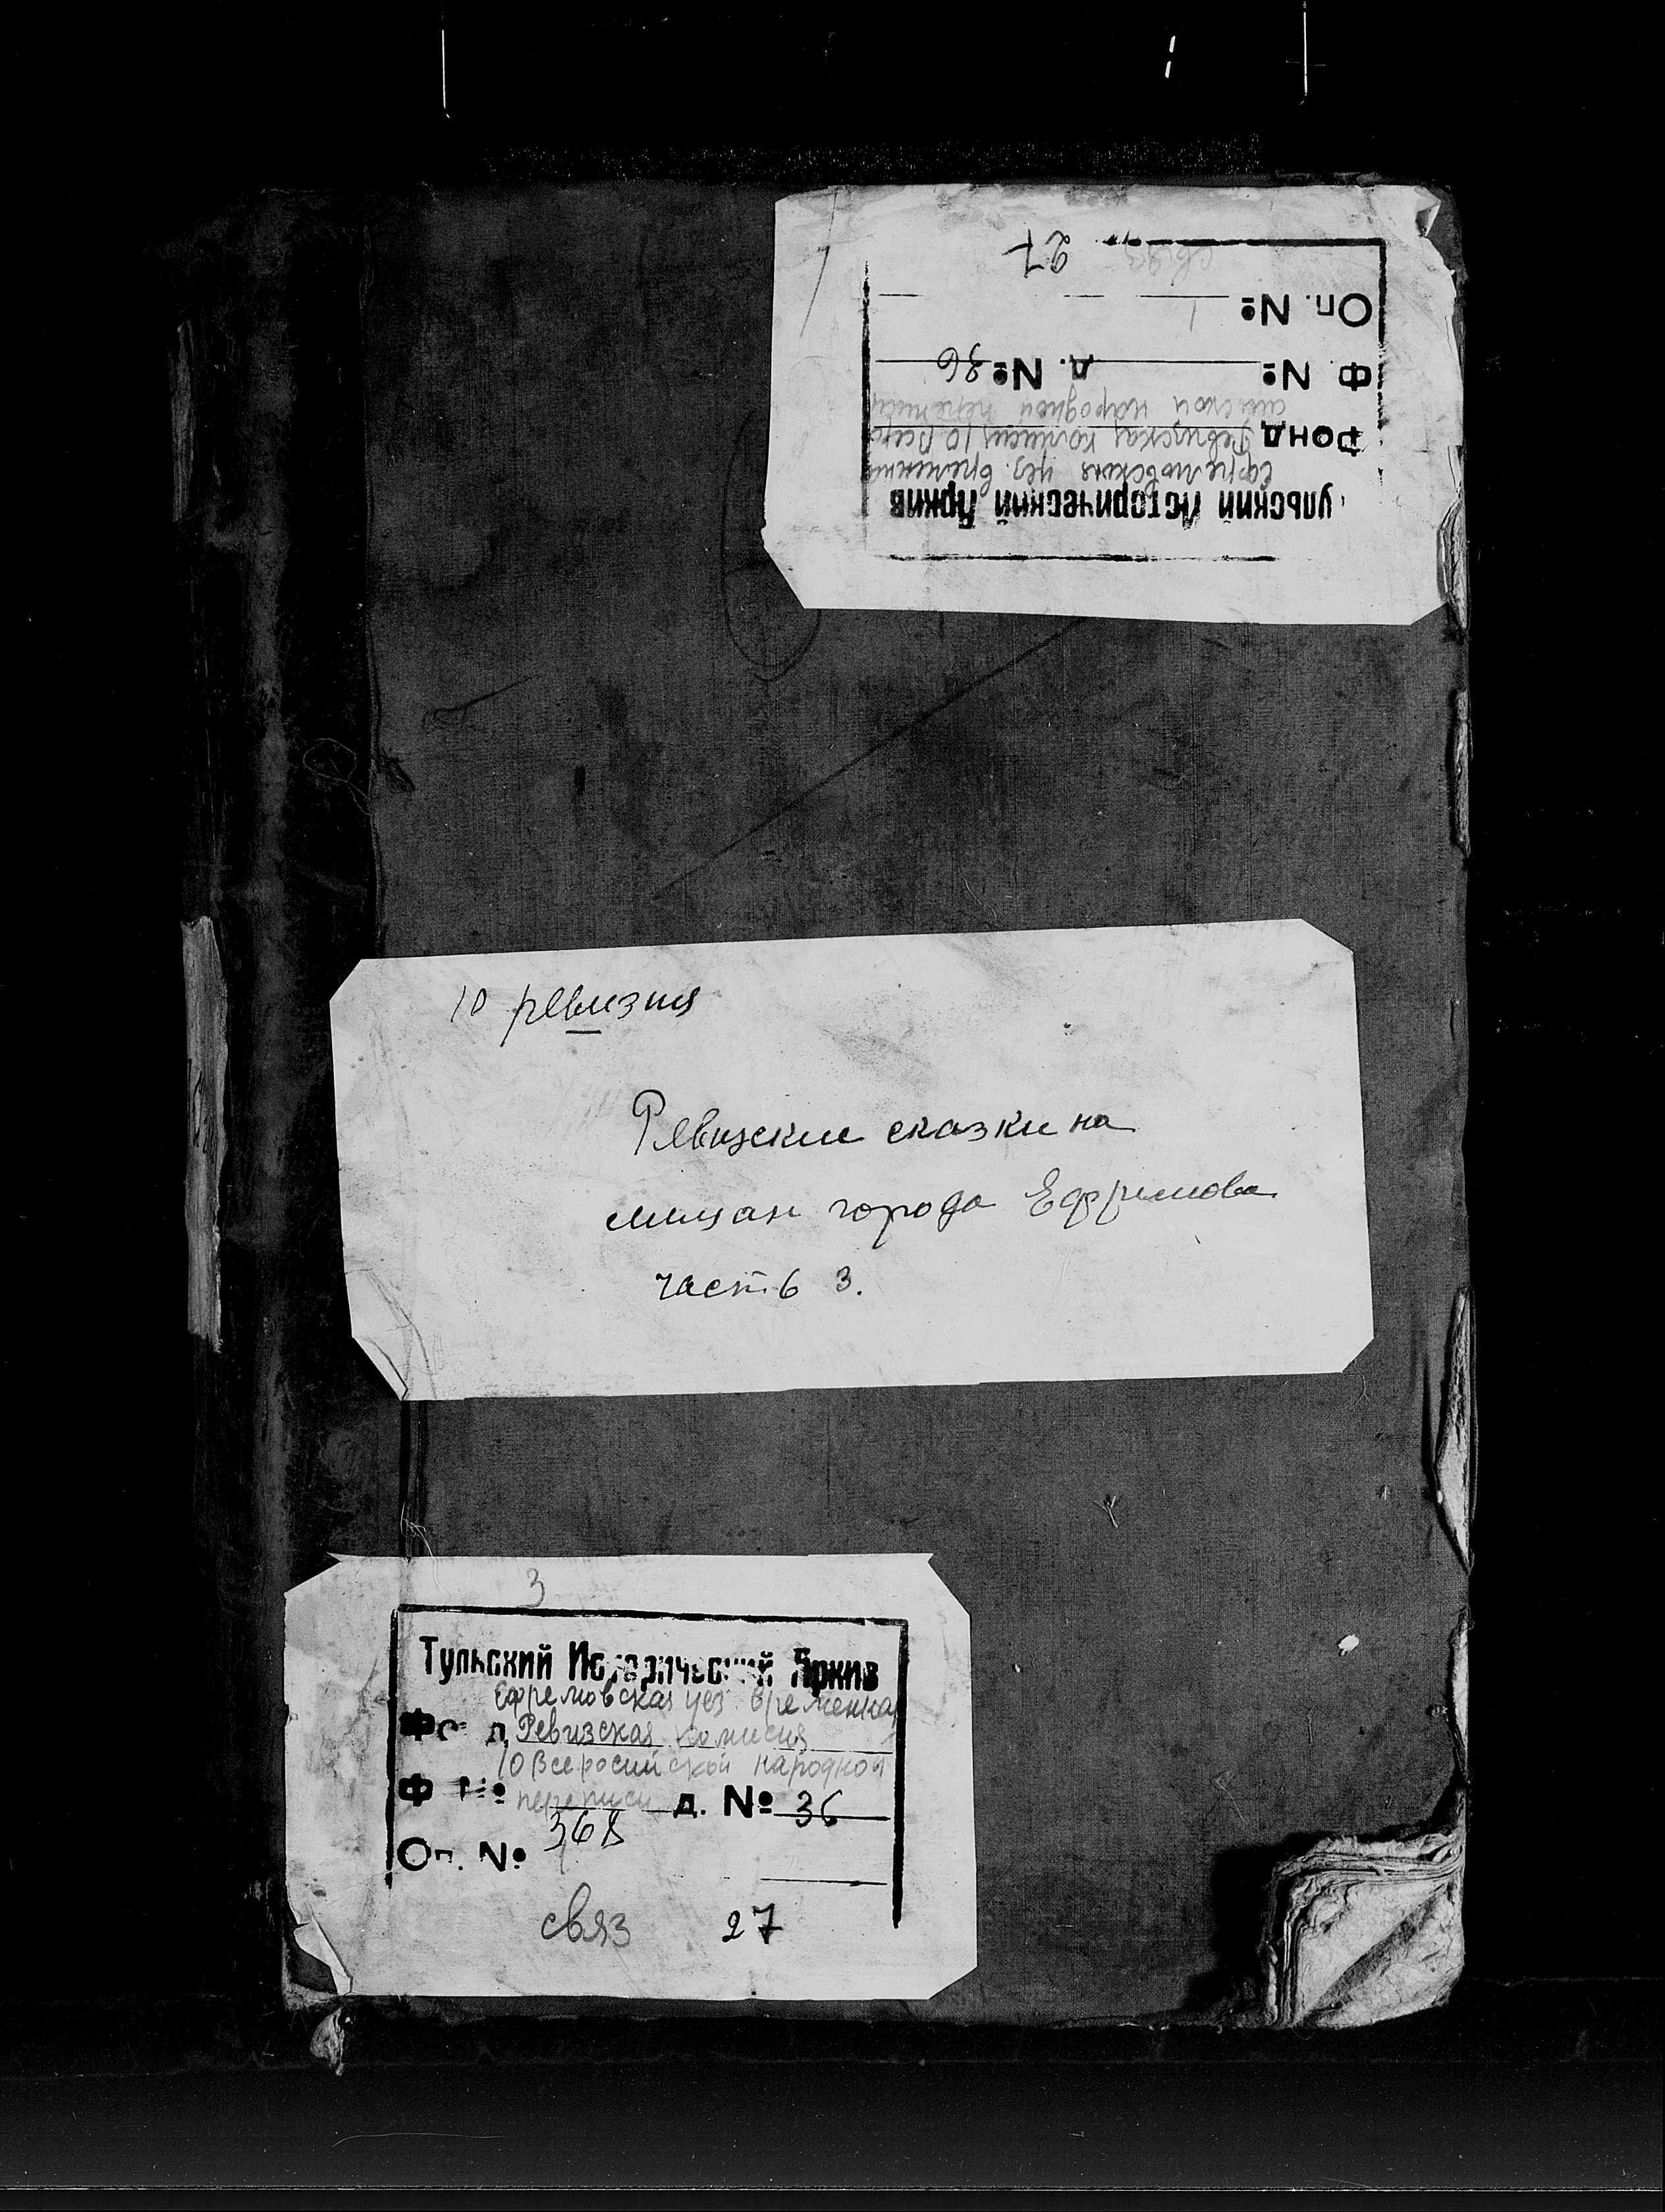 Тульский Исторический Архив
Ефремовская уез. временная
Фонд Ревизская комисия 10 Всеро
сийской народной переписи
Ф. № д. № 36
Оп. № 1
связ. 27
10 ревизия
Ревизские сказки на
мещан города Ефремова
часть 3.
3
Тульский Исторический Архив
Ефремовская уез. временная
Фонд Ревизская комисия
10 Всеросийской народной
Ф № переписи д. № 36
368
Оп. №
связ 27